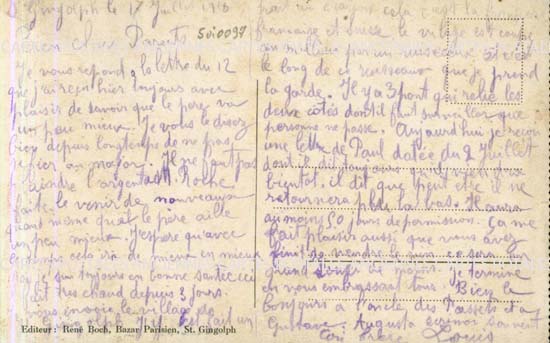 Gingolph le 17 Juillet 1918
bien chers Parents
500097
Je vous répond à la lettre du 12
que j'ai reçu hier toujours avec
plaisir de savoir que le père va
un peu mieux. Je vous le disez
bien depuis longtemps de ne pas
fier au major. Il ne faut pas
plaindre l'argent si Roche
faite le venir de nouveaux
quand même que le père aille
un peu mieux. J'espère qu'avec
le temps cela ira de mieux en mieux
que je suis toujours en bonne santé ici
fait très chaud depuis 3 jours.
vous envoie le village de
Gingolph
fait un
cela c'est la
française et suisse le village est coupé
au milieux par un ruisseaux et c'est
le long de ce ruisseaux que je prend
la garde. Il y a 3 pont qui relie les
deux côtés dont il faut surveiller que
personne ne passe. Aujourd'hui je reçu
une lettre de Paul datée du 2 Juillet
dont il dit
bientôt, il dit que peut être il ne
retournera plus la bas. Il aura
au moins 50 jours de permission. Ça me
fait plaisir aussi que vous avez
fini de vendre le
grand de moins. Je termine
en vous embrassant tous. Bien le
bonjours à l'oncle, des Tassets et à
Gustave. Augusta
Louis
Editeur: René Boch, Bazar Parisien, St. Gingolph